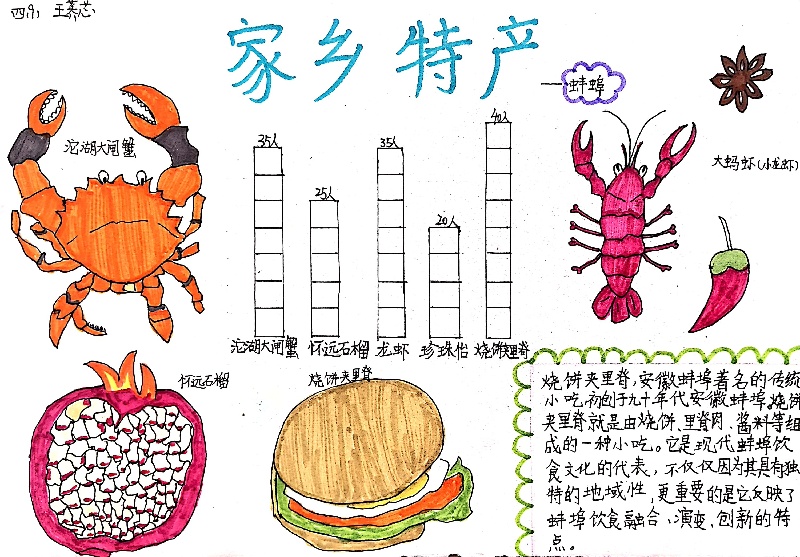 四(1) 王慕芯
家乡特产
蚌埠
沱湖大闸蟹
大蚂虾(小龙虾)
35人
25人
35人
20人
40人
沱湖大闸蟹
怀远石榴
龙虾
珍珠
烧饼夹里脊
怀远石榴
烧饼夹里脊
烧饼夹里脊,安徽蚌埠著名的传统
小吃,初创于九十年代安徽蚌埠。烧饼
夹里脊就是由烧饼、里脊肉、酱料等组
成的一种小吃。它是现代蚌埠饮
食文化的代表,不仅仅因为其具有独
特的地域性,更重要的是它反映了
蚌埠饮食融合、演变、创新的特
点。